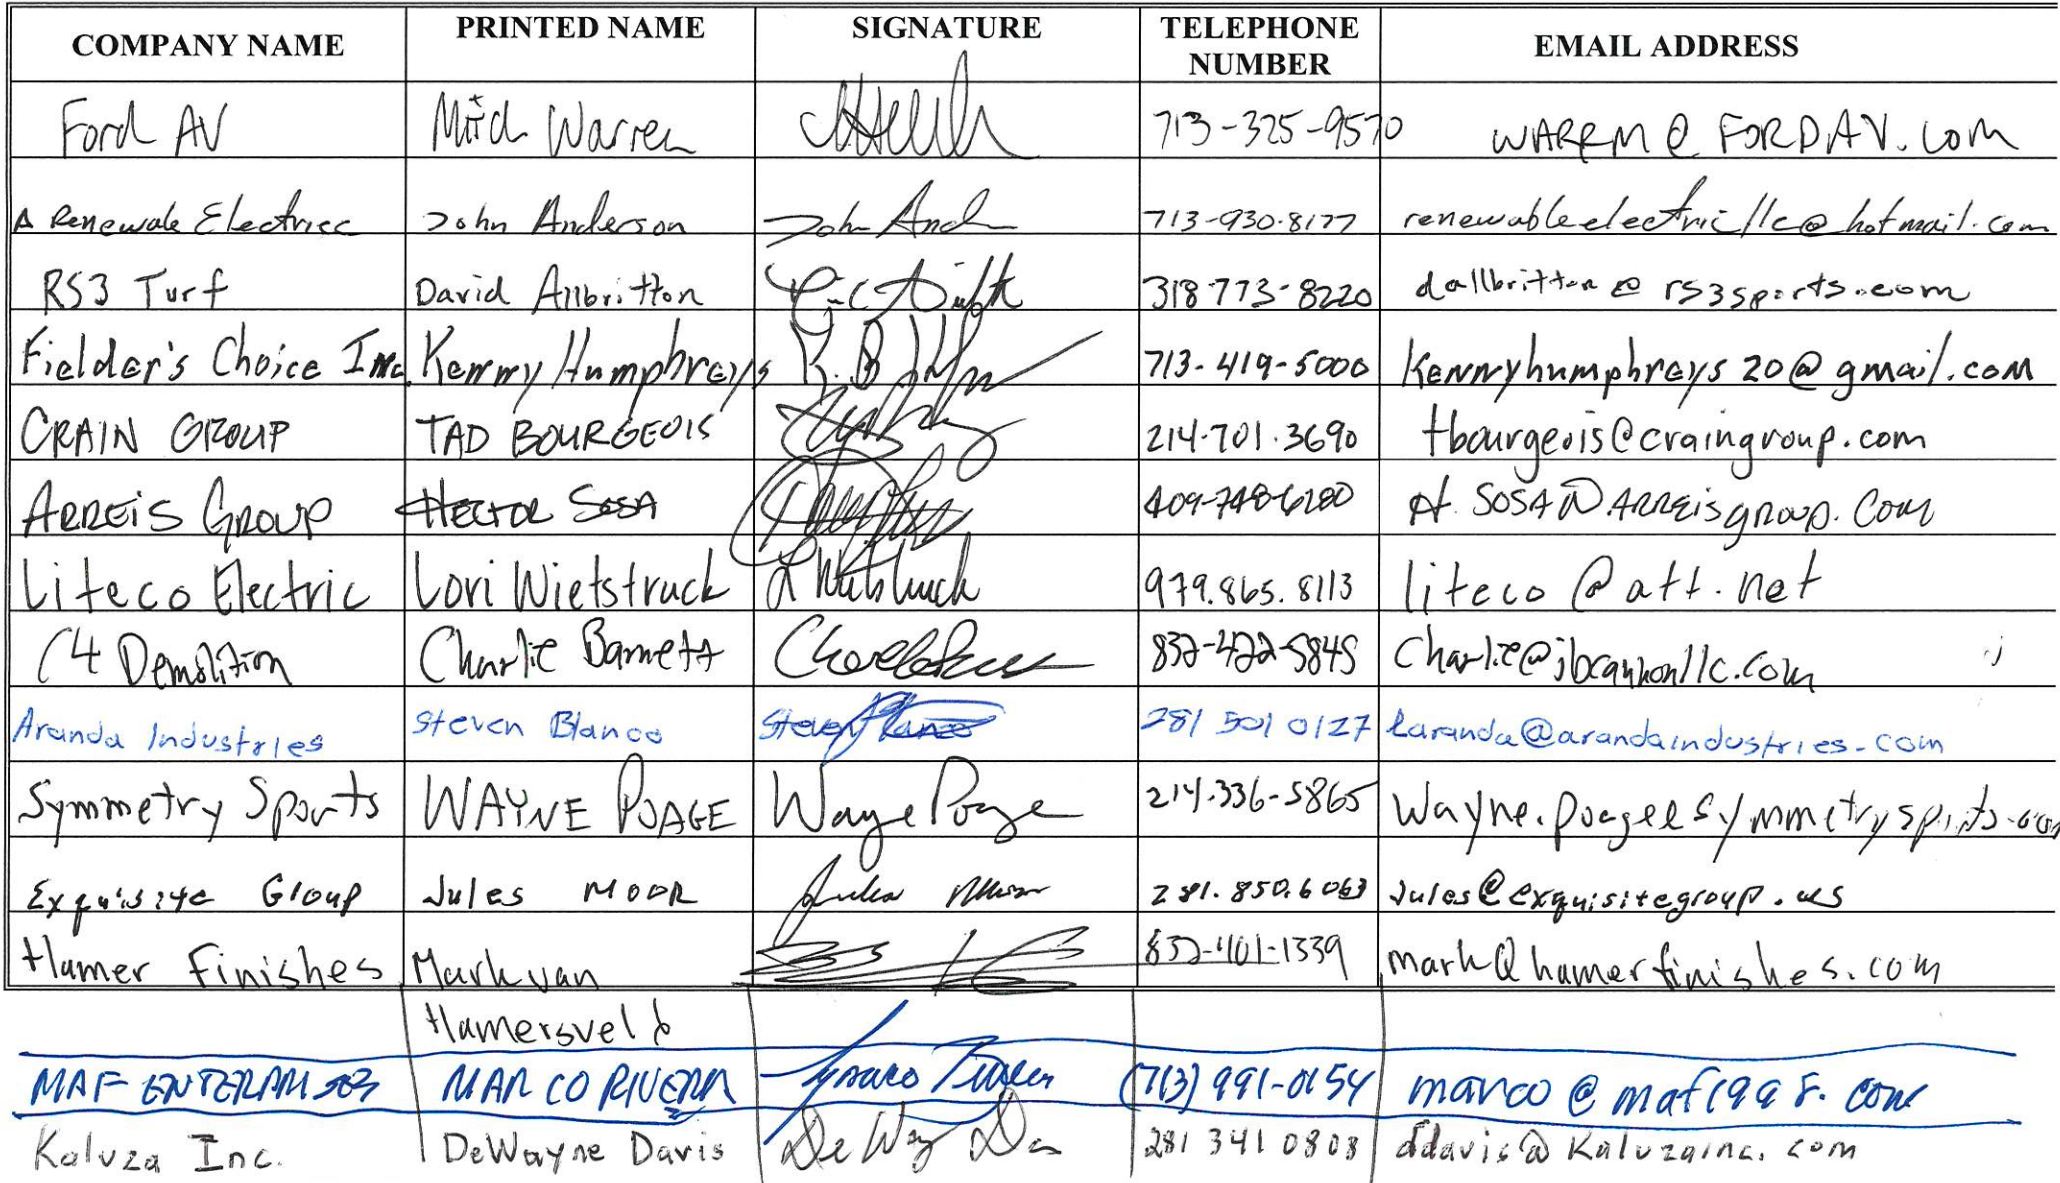 COMPANY NAME PRINTED NAME SIGNATURE TELEPHONE NUMBER EMAIL ADDRESS
Ford AV Warren 713-325-9570 WARRM@FORDAV.COM
A Renewale Electricc John Anderson John And 713-930-8177 renewableelectricllc@hotmail.com
RS3 Turf David Allbritton 318 773-8220 dallbritton@rs3sports.com
Fielder's Choice Inc. Kenny Humphreys 713-419-5000 Kennyhumphreys20@gmail.com
CRAIN GROUP TAD BOURGEOIS 214-701.3690 tbourgeois@craingroup.com
ARREIS GROUP HECTOR SOSA 409-748-6280 H.SOSA@ARREISgROUP.Com
Liteco Electric Lori Wietstruck L Wietstruck 979.865.8113 liteco@att.net
C4 Demolition Charlie Barnett 832-422-5845 Charlie@jbcannonllc.com
Aranda Industries Steven Blanco Steven Blanco 281 501 0127 laranda@arandaindustries.com
Symmetry Sports WAYNE POAGE Wayne Poage 214-336-5865 Wayne.poage@Symmetrysports.com
Exquisite Group Jules MOOR 281.850.6063 Jules@exquisitegroup.us
Hamer Finishes Mark van 832-401-1339 mark@hamerfinishes.com
Hamersveld
MAF ENTERPRISES MARCO RIVERA Marco Rivera (713) 991-0154 marco@maf1998.com
Kaluza Inc. DeWayne Davis 281 341 0808 ddavis@Kaluzainc.com